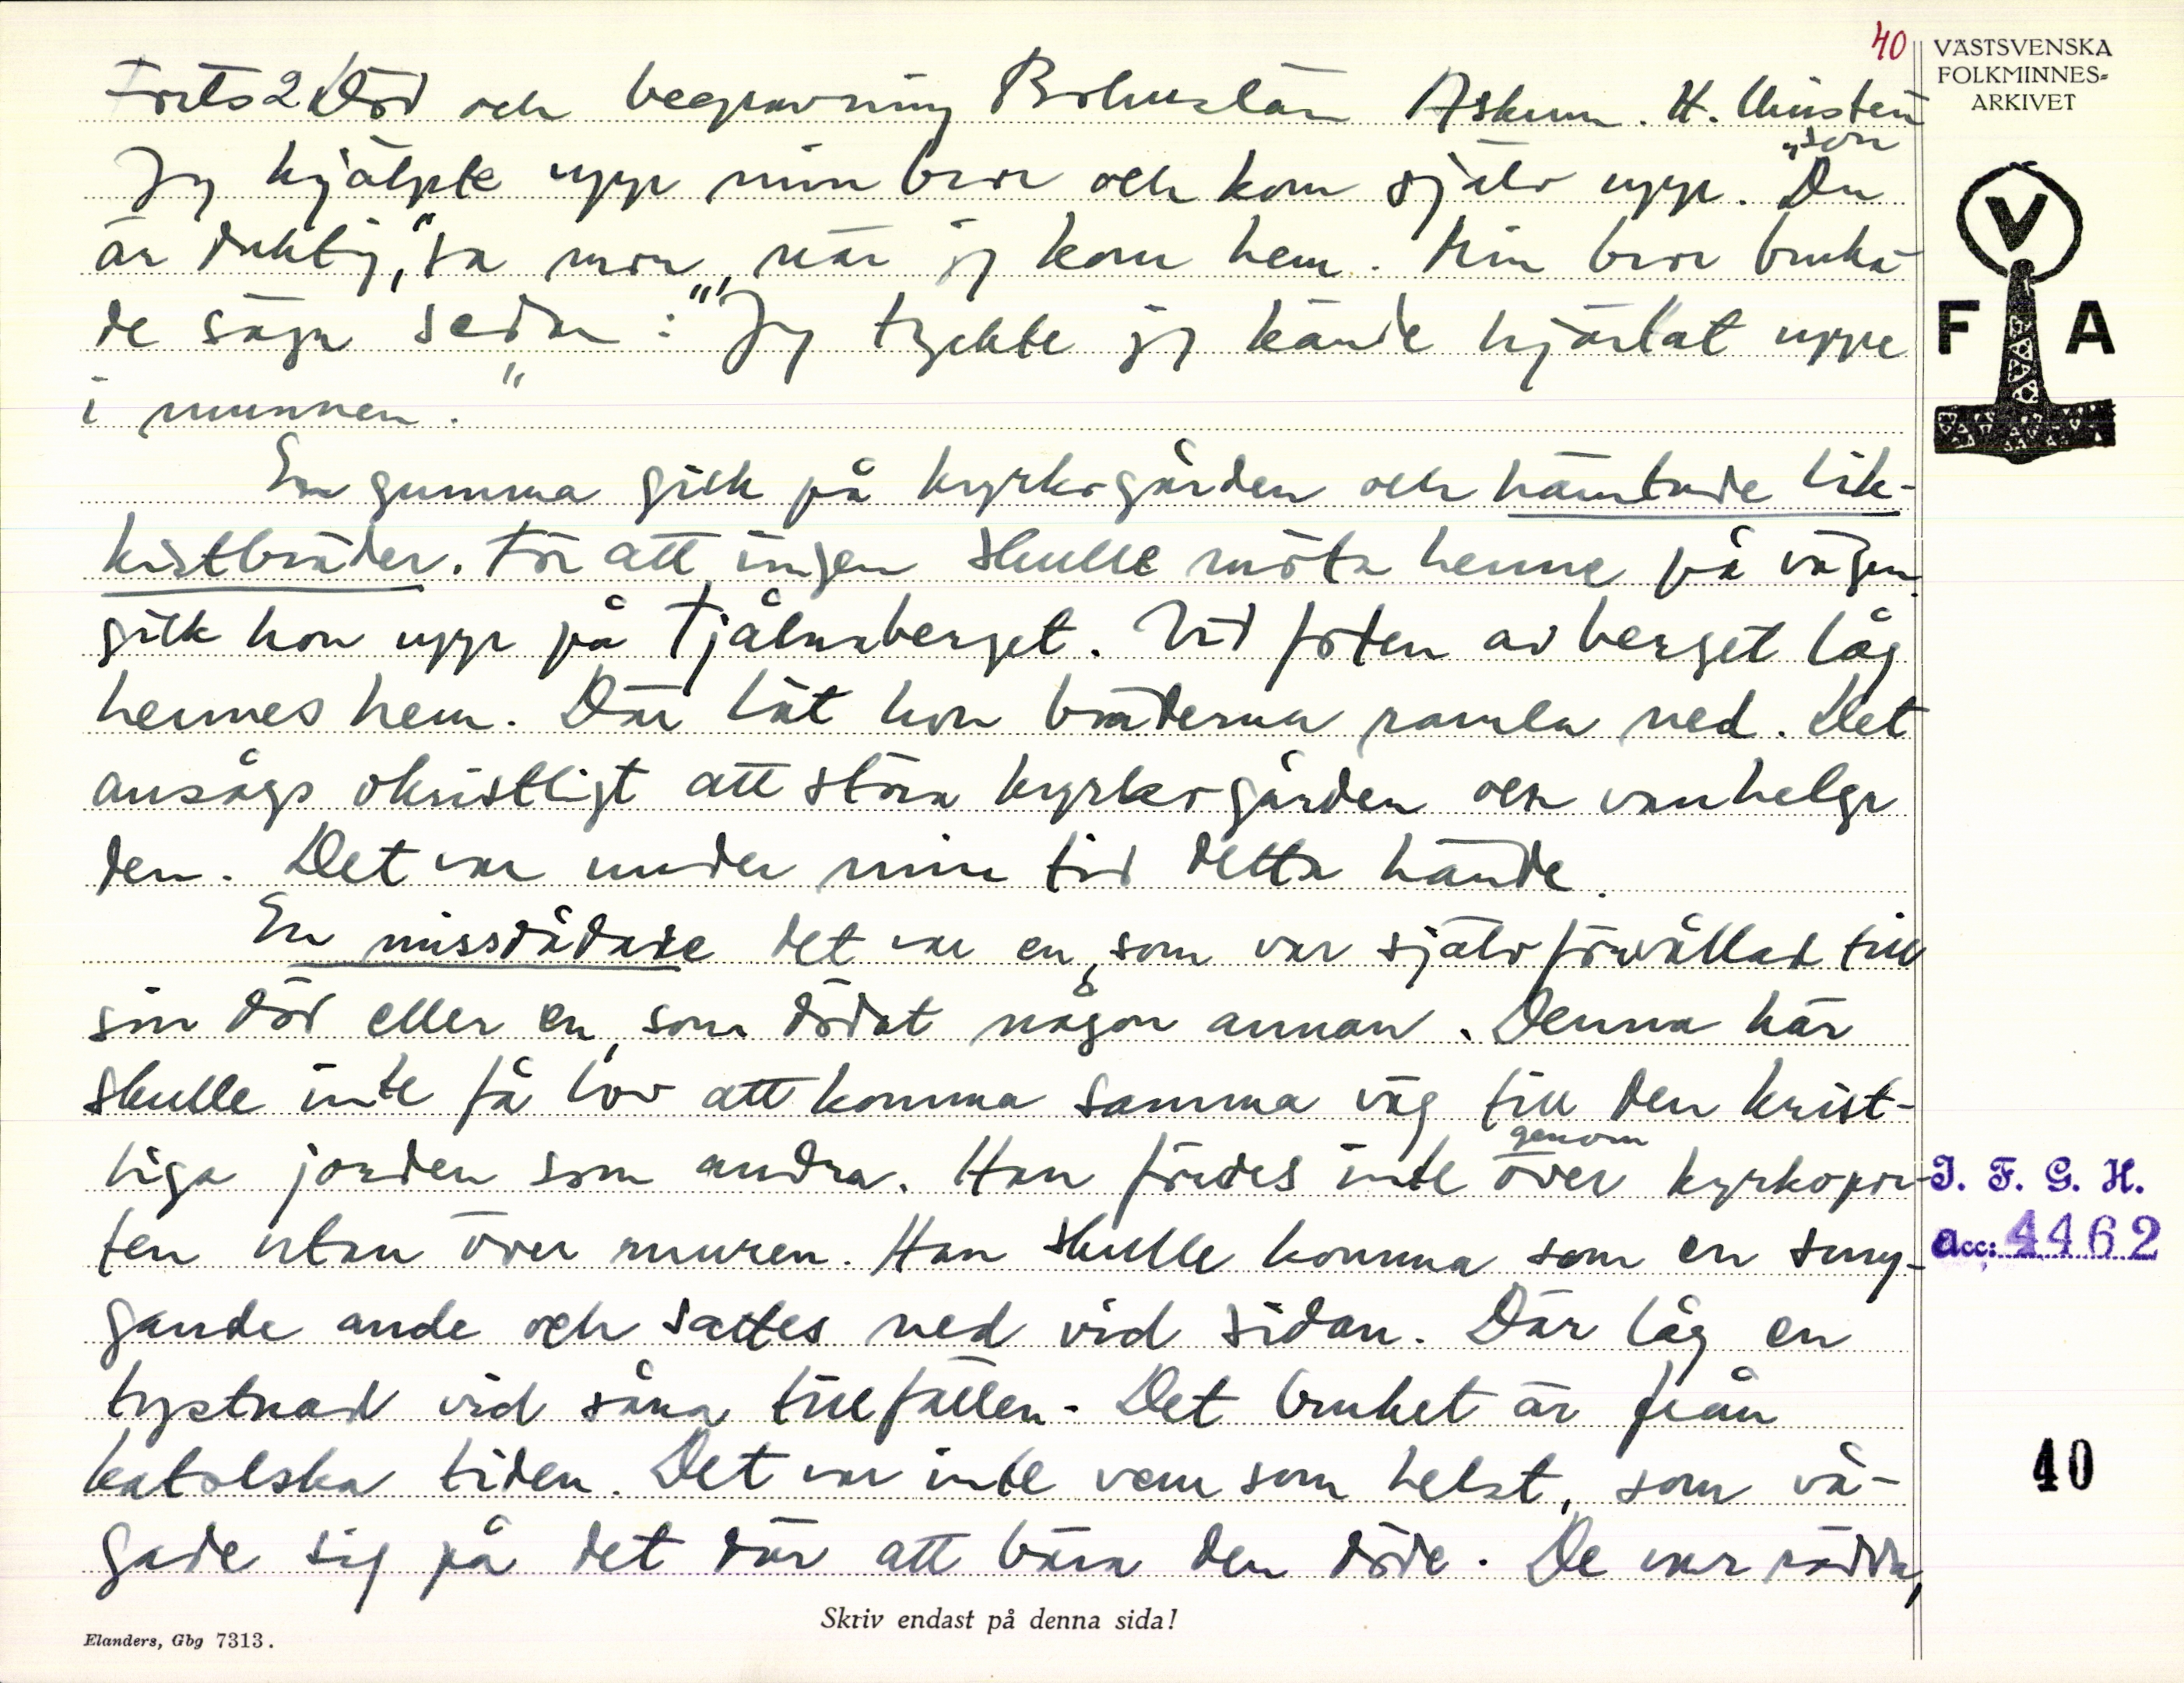 40
VÄSTSVENSKA
FOLKMINNES=
ARKIVET
Forts 2 Död och begravning Bohuslän Askum. H. Christen
son
Jag hjälpte upp min bror och kom själv upp. "Du
är duktig," sa mor, när jag kom hem. Min bror bruka-
de säga sedan: "Jag tyckte jag kände hjärtat uppe
i munnen."
En gumma gick på kyrkogården och hämtade lik-
kistbräder. För att ingen skulle möta henne på vägen
gick hon upp på Tjålnaberget. Vid foten av berget låg
hennes hem. Där lät hon bräderna ramla ned. Det
ansågs okristligt att störa kyrkogården och vanhelga
den. Det var under min tid detta hände.
En missdådare det var en, som var självförvållad till
sin död eller en, som dödat någon annan. Denna här
skulle inte få lov att komma samma väg till den krist-
liga jorden som andra. Han fördes inte över kyrkopor-
genom
ten utan över muren. Han skulle komma som en smy-
gande ande och sattes ned vid sidan. Där låg en
tystnad vid såna tillfällen. Det bruket är från
katolska tiden. Det var inte vem som helst, som vå-
gade sig på det där att bära den döde. De var rädda,
V
F A
I. F. G. H.
acc: 4462
40
Skriv endast på denna sida!
Elanders, Gbg 7313.